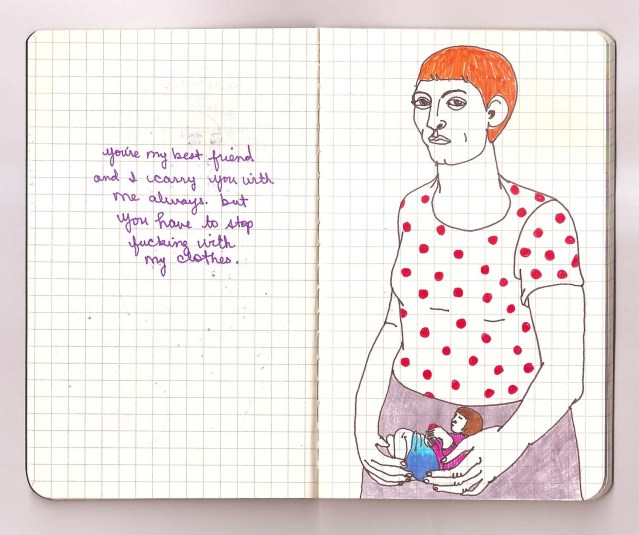 you're my best friend
and I carry you with
me always. but
you have to stop
fucking with
my clothes.